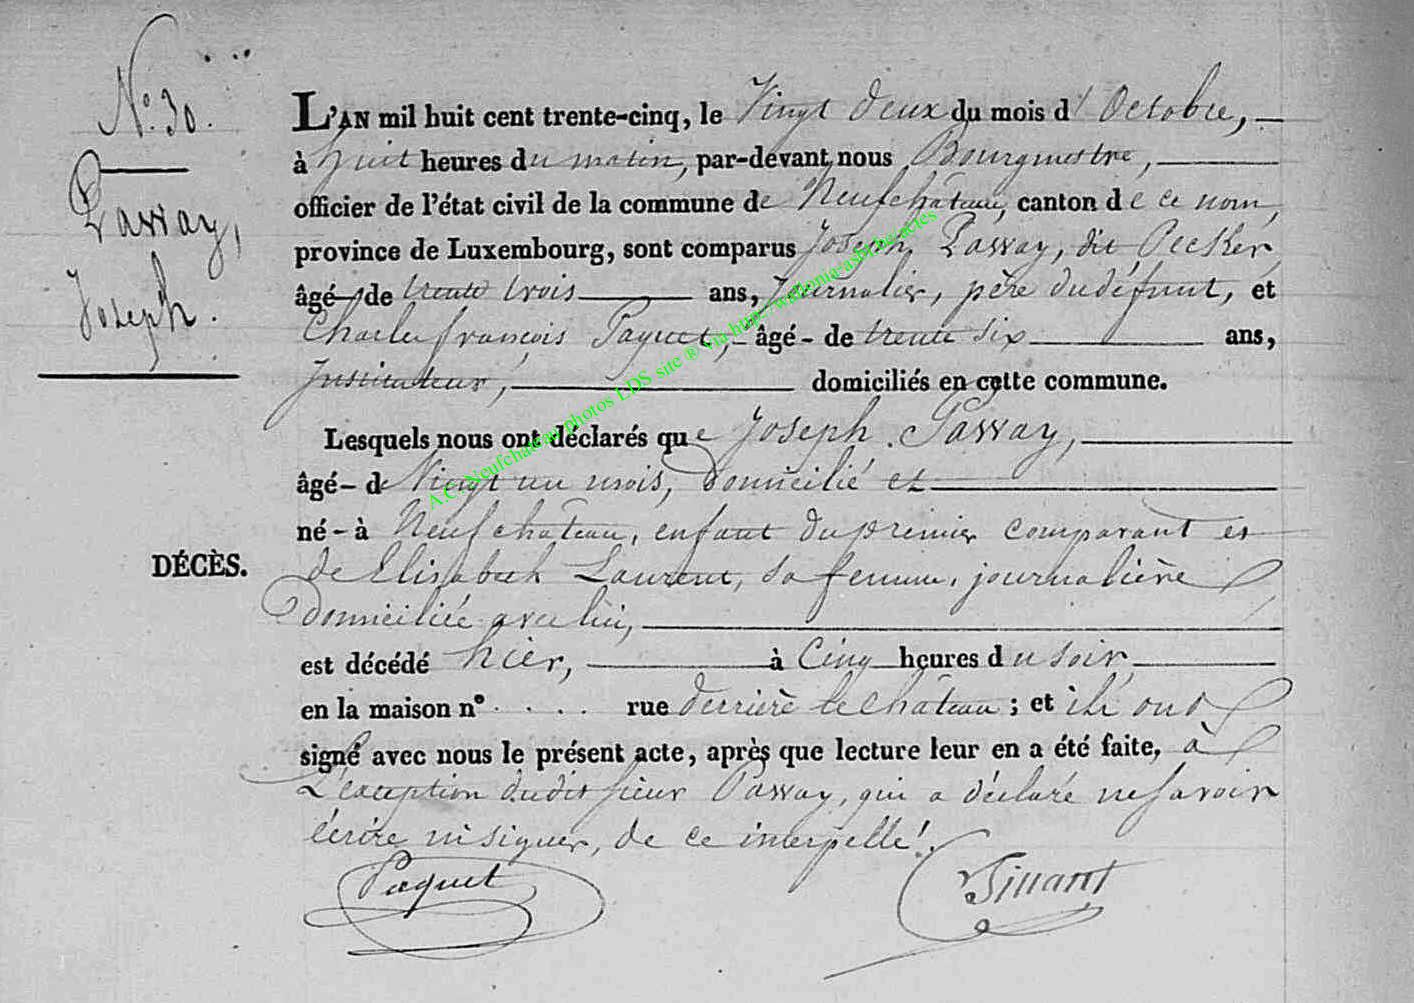 N° 30.
Passay,
Joseph.
DÉCÈS.
L'AN mil huit cent trente-cinq, le Vingt deux du mois d'Octobre,
à huit heures du matin, par-devant nous Bourgmestre,
officier de l'état civil de la commune de Neufchâteau, canton de ce nom,
province de Luxembourg, sont comparus Joseph Passay, dit
âgé de trente trois ans, Journalier, père du défunt, et
Charles françois Paquet, âgé - de trente six ans,
Instituteur, domiciliés en cette commune.
Lesquels nous ont déclarés que Joseph Passay,
âgé - de Vingt un mois, domicilié et
né - à Neufchâteau, enfant du premier comparant et
de Elisabeth Laurent, sa femme, journalière
domiciliée avec lui,
est décédé hier, à Cinq heures du soir
en la maison n° . . . . rue derrière le château ; et ils ont
signé avec nous le présent acte, après que lecture leur en a été faite, à
L'exception dudit sieur Passay, qui a déclaré ne savoir
écrire ni signer, de ce interpellé.
Paquet
A.C. Neufchateau photos LDS site ® via http://wallonia-asbl.be/actes